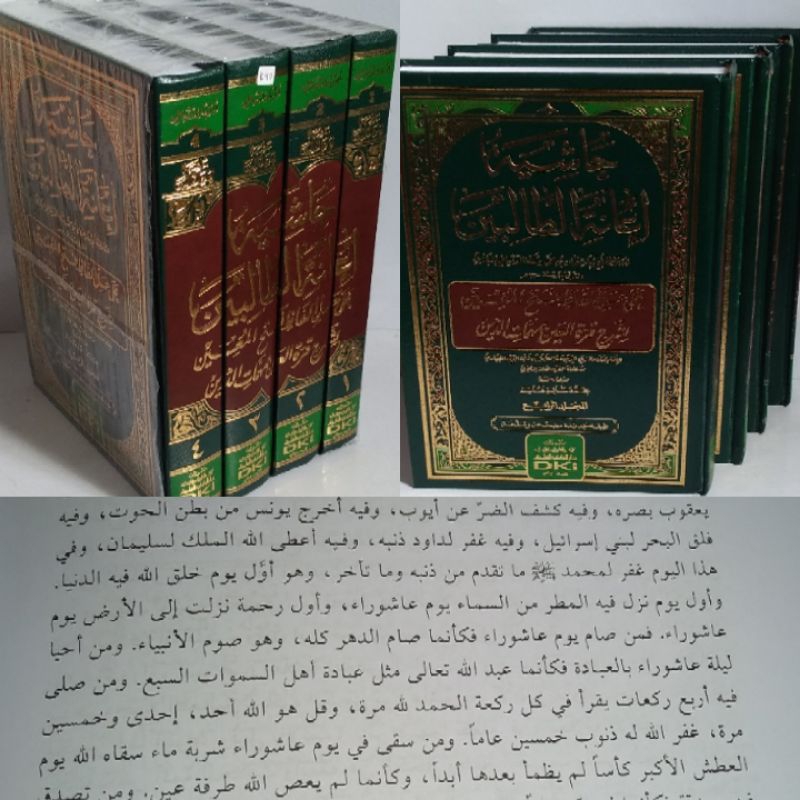 حاشية
إعانة الطالبين
على حل ألفاظ فتح المعين
لشرح قرة العين بمهمات الدين
١
٢
٣
٤
DKi
حاشية
إعانة الطالبين
على حل ألفاظ فتح المعين
لشرح قرة العين بمهمات الدين
المجلد الرابع
DKi
يعقوب بصره، وفيه كشف الضرّ عن أيوب، وفيه أخرج يونس من بطن الحوت، وفيه
فلق البحر لبني إسرائيل، وفيه غفر لداود ذنبه، وفيه أعطى الله الملك لسليمان، وفي
هذا اليوم غفر لمحمد ﷺ ما تقدم من ذنبه وما تأخر، وهو أوَّل يوم خلق الله فيه الدنيا.
وأول يوم نزل فيه المطر من السماء يوم عاشوراء، وأول رحمة نزلت إلى الأرض يوم
عاشوراء. فمن صام يوم عاشوراء فكأنما صام الدهر كله، وهو صوم الأنبياء. ومن أحيا
ليلة عاشوراء بالعبادة فكأنما عبد الله تعالى مثل عبادة أهل السموات السبع. ومن صلى
فيه أربع ركعات يقرأ في كل ركعة الحمد لله مرة، وقل هو الله أحد، إحدى وخمسين
مرة، غفر الله له ذنوب خمسين عاماً. ومن سقى في يوم عاشوراء شربة ماء سقاه الله يوم
العطش الأكبر كأساً لم يظمأ بعدها أبداً، وكأنما لم يعص الله طرفة عين. ومن تصدق